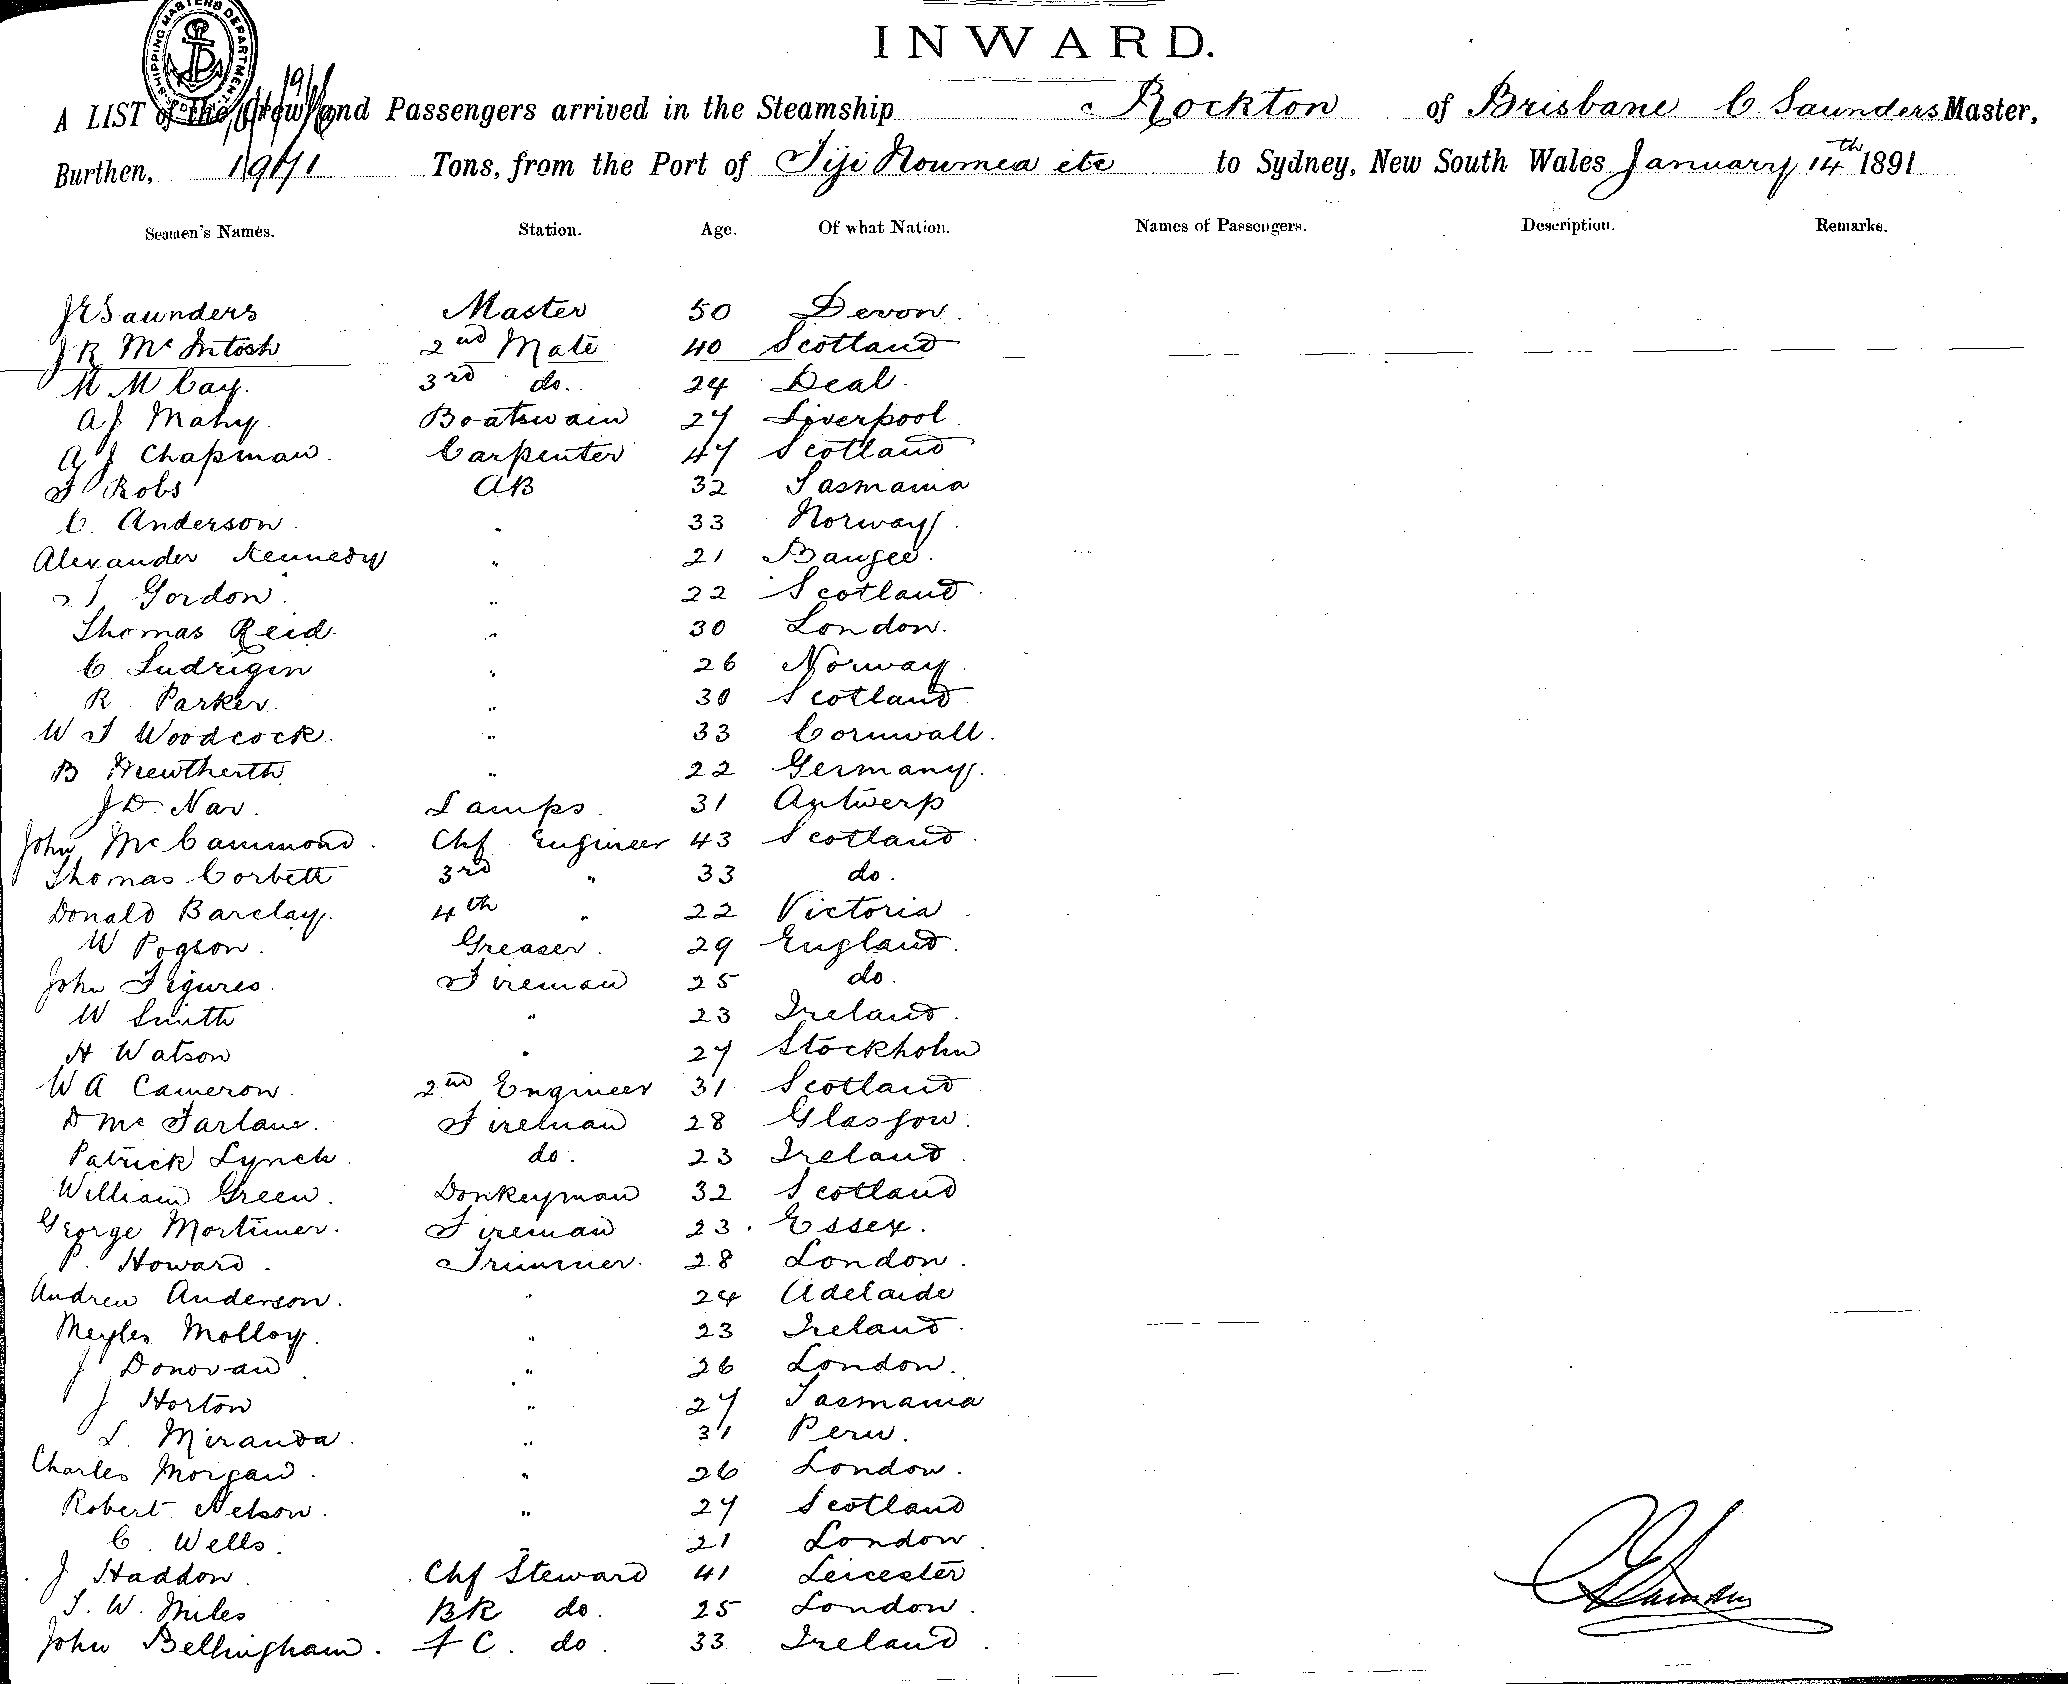 SHIPPING MASTERS DEPARTMENT
INWARD.
A LIST of the Crew and Passengers arrived in the Steamship Rockton of Brisbane C Saunders Master,
Burthen, 1971 Tons, from the Port of Fiji Noumea etc to Sydney, New South Wales January 14th 1891
Seamen's Names. Station. Age. Of what Nation. Names of Passengers. Description. Remarks.
Saunders Master 50 Devon.
J R McIntosh 2nd Mate 40 Scotland
M M Cay. 3rd do. 24 Deal.
A J Mahy. Boatswain 27 Liverpool
A J Chapman. Carpenter 47 Scotland
Robs AB 32 Tasmania
C. Anderson. " 33 Norway.
Alexander Kennedy " 21
Gordon. " 22 Scotland.
Thomas Reid. " 30 London.
C Ludrigin " 26 Norway.
R. Parker. " 30 Scotland
W T Woodcock. " 33 Cornwall.
B " 22 Germany.
J D. Nav. Lamps. 31 Antwerp
John McCammond. Chf Engineer 43 Scotland.
Thomas Corbett 3rd " 33 do.
Donald Barclay. 4th " 22 Victoria
W Pogson. Greaser. 29 England.
John Figures. Fireman 25 do.
W Smith " 23 Ireland.
H Watson " 27 Stockholm
W A Cameron. 2nd Engineer 31 Scotland
D McFarlane. Fireman 28 Glasgow.
Patrick Lynch. do. 23 Ireland.
William Green. Donkeyman 32 Scotland
George Mortimer. Fireman 23. Essex.
P. Howard. Trimmer. 28 London.
Andrew Anderson. " 24 Adelaide
Meyles Molloy. " 23 Ireland.
J Donovan. " 26 London.
J Horton " 27 Tasmania
L. Miranda. " 31 Peru.
Charles Morgan. " 26 London.
Robert Nelson. " 27 Scotland
C. Wells. " 21 London.
J Haddon. Chf Steward 41 Leicester
T. W. Miles BK do. 25 London.
John Bellingham. F C. do. 33 Ireland.